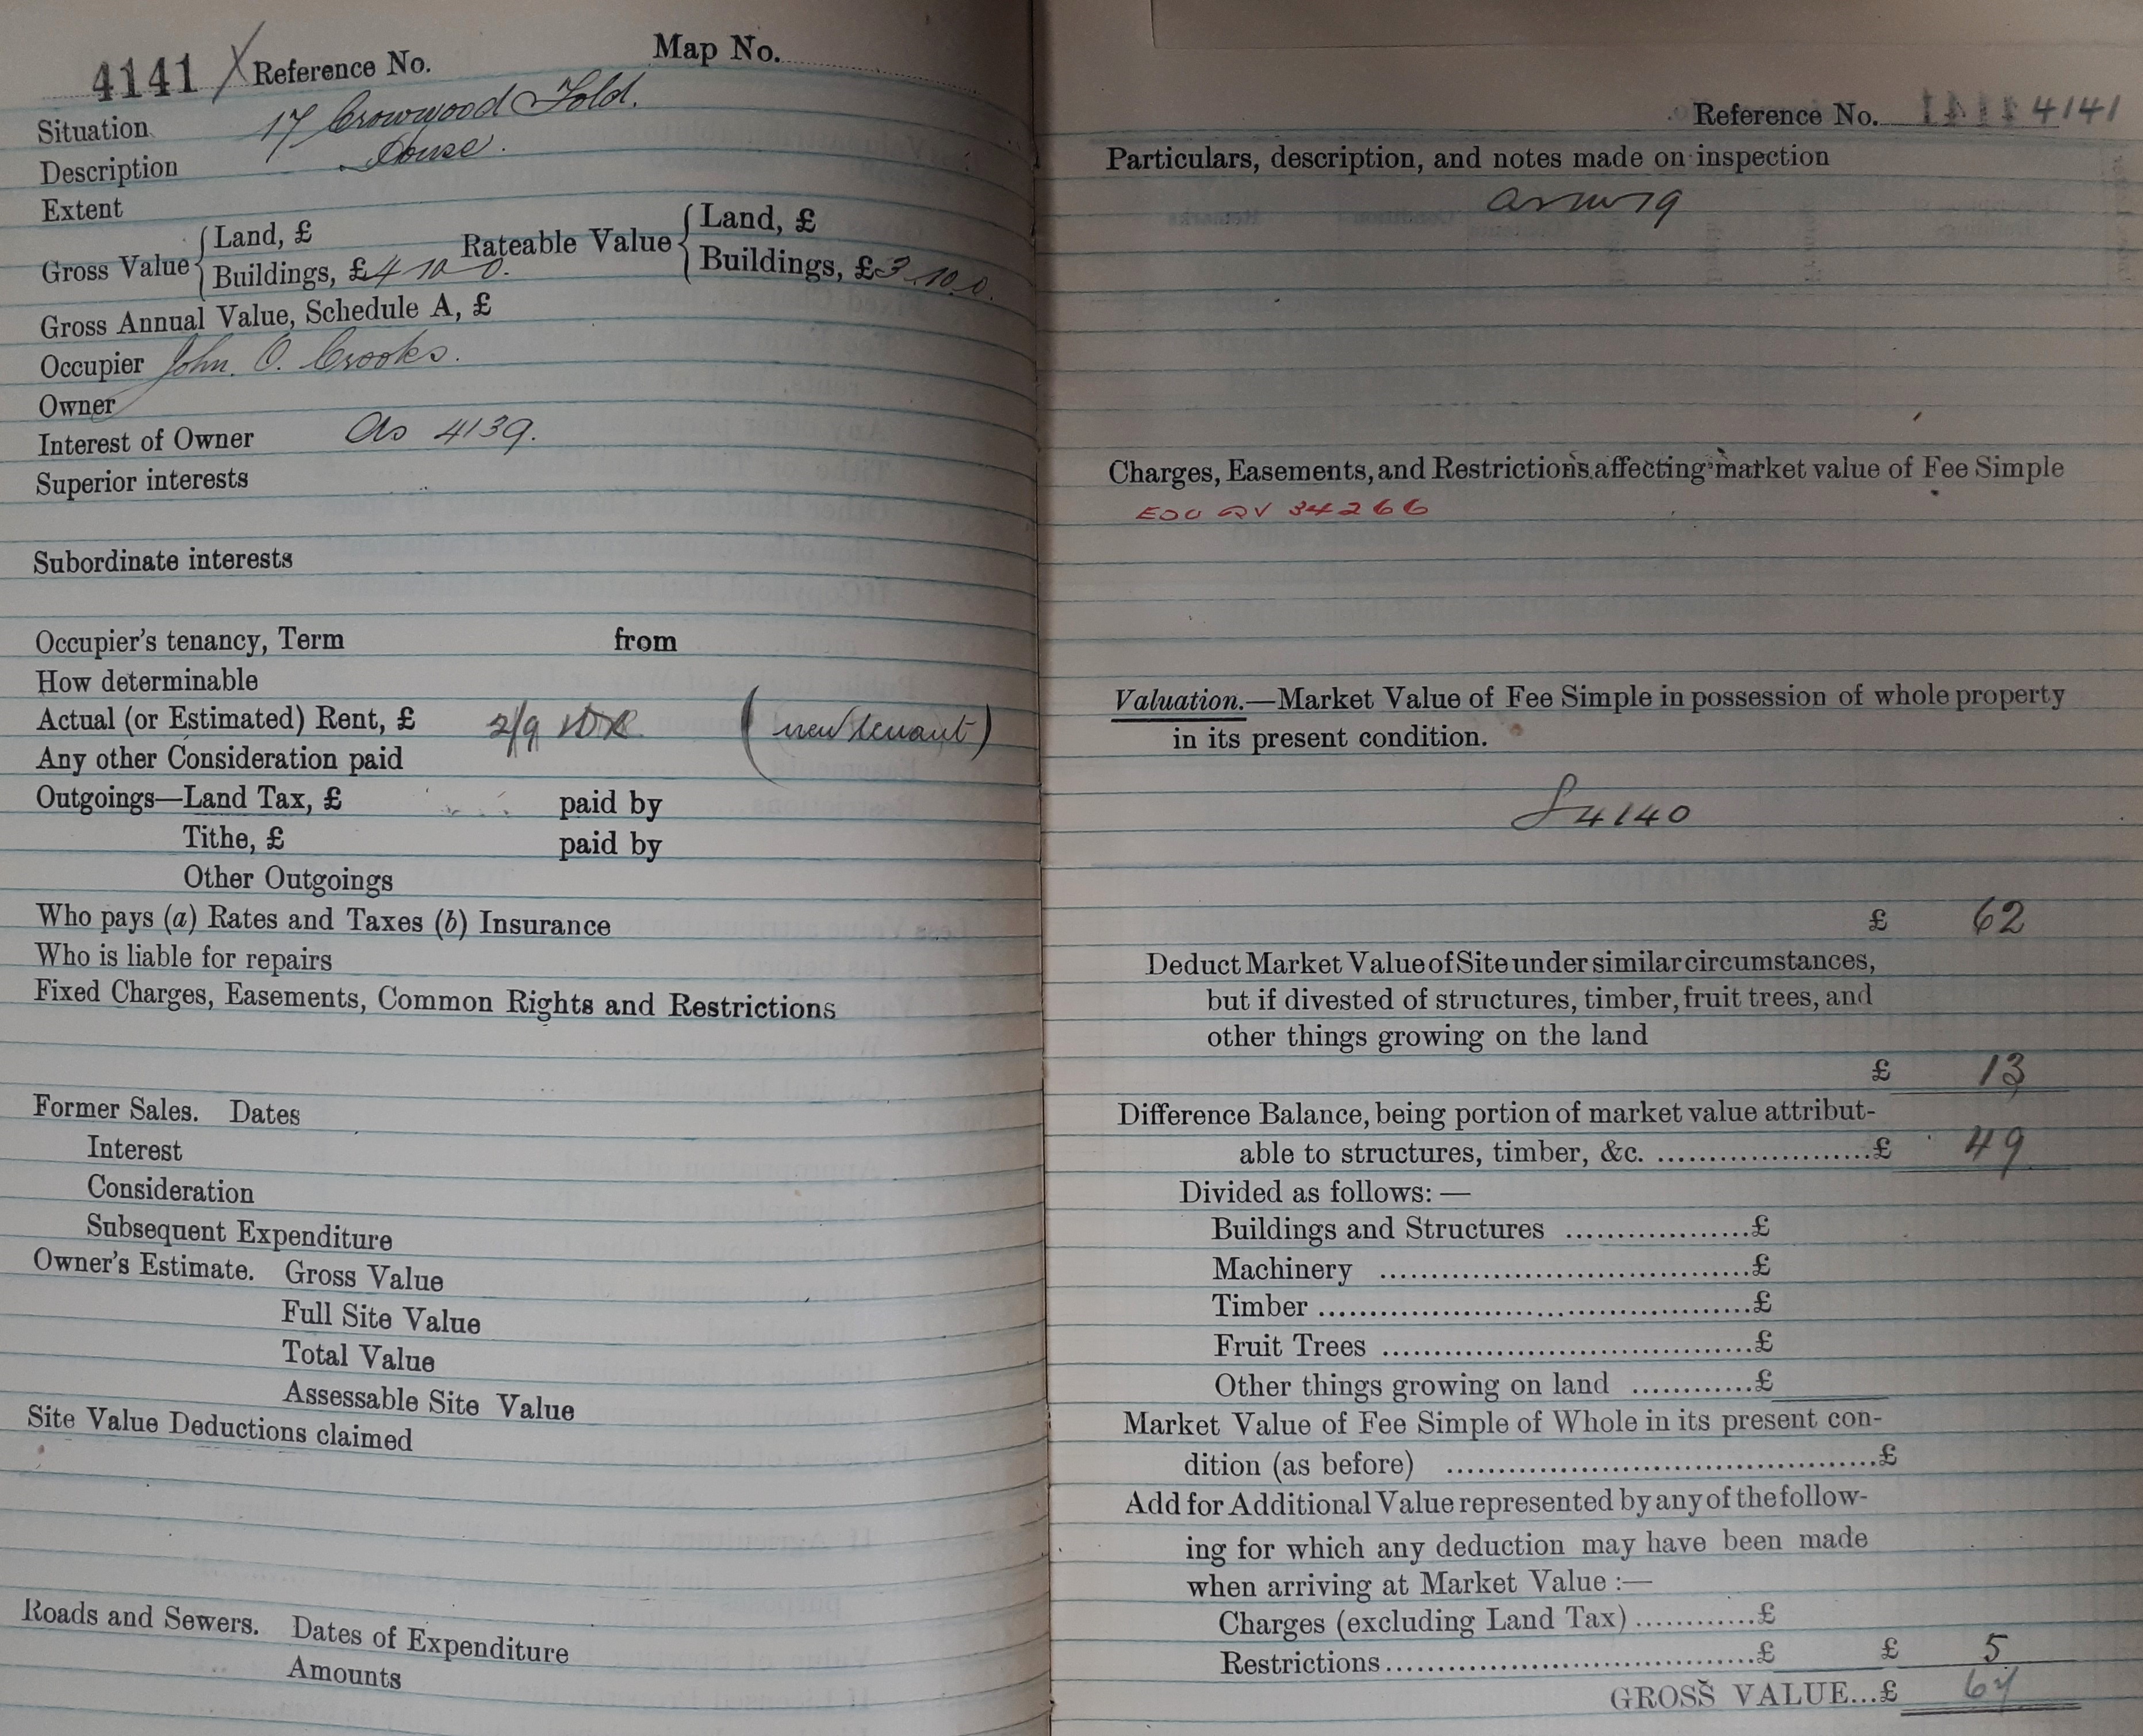 4141 X Reference No. Map No.
Situation 17 Crowwood Fold.
Description House.
Extent
Gross Value { Land, £
Buildings, £ 4 10 0. Rateable Value { Land, £
Buildings, £ 3. 10. 0.
Gross Annual Value, Schedule A, £
Occupier John. O. Crooks.
Owner
Interest of Owner as 4139.
Superior interests
Subordinate interests
Occupier's tenancy, Term from
How determinable
Actual (or Estimated) Rent, £ 2/9 (new tenant)
Any other Consideration paid
Outgoings—Land Tax, £ paid by
Tithe, £ paid by
Other Outgoings
Who pays (a) Rates and Taxes (b) Insurance
Who is liable for repairs
Fixed Charges, Easements, Common Rights and Restrictions
Former Sales. Dates
Interest
Consideration
Subsequent Expenditure
Owner's Estimate. Gross Value
Full Site Value
Total Value
Assessable Site Value
Site Value Deductions claimed
Roads and Sewers. Dates of Expenditure
Amounts
Reference No. 4141
Particulars, description, and notes made on inspection
Charges, Easements, and Restrictions affecting market value of Fee Simple
34266
Valuation.—Market Value of Fee Simple in possession of whole property
in its present condition.
4140
£ 62
Deduct Market Value of Site under similar circumstances,
but if divested of structures, timber, fruit trees, and
other things growing on the land
£ 13
Difference Balance, being portion of market value attribut-
able to structures, timber, &c. ....................£ 49
Divided as follows: —
Buildings and Structures ..................£
Machinery ....................................£
Timber .........................................£
Fruit Trees ....................................£
Other things growing on land ............£
Market Value of Fee Simple of Whole in its present con-
dition (as before) ..........................................£
Add for Additional Value represented by any of the follow-
ing for which any deduction may have been made
when arriving at Market Value :—
Charges (excluding Land Tax) ............£
Restrictions....................................£ £ 5
GROSS VALUE...£ 67